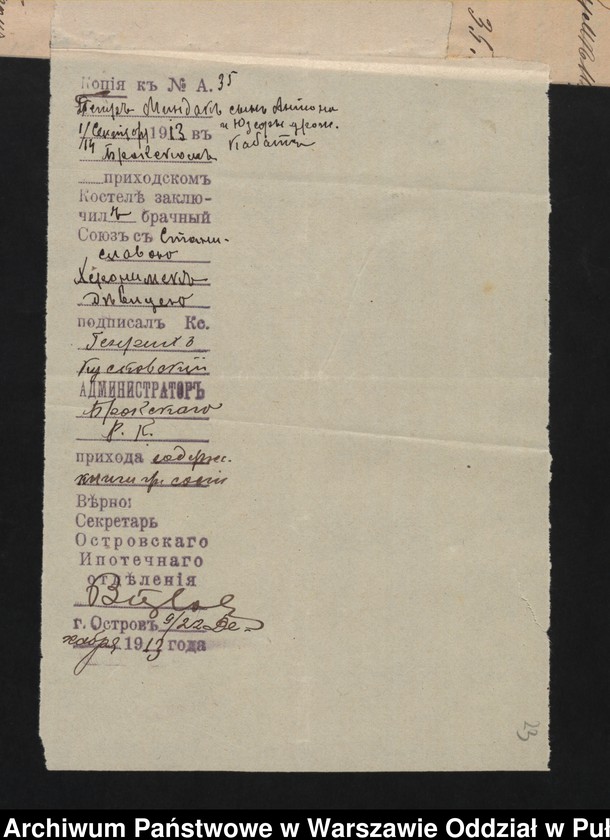 35.
Копія къ № А. 35
Петръ Миндакъ сынъ Антона
и Юзефы урож.
1/14 Сентября 1913 въ
Брокскомъ
приходскомъ
Костелѣ заклю-
чилъ брачный
Союзъ съ Стани-
славою
дѣвицею
подписалъ Кс.
Генрихъ
АДМИНИСТРАТОРЪ
Брокскаго
Р. К.
прихода содерж.
книги гр. сост
Вѣрно:
Секретарь
Островскаго
Ипотечнаго
отдѣленія
г. Островъ 9/22 Де-
кабря 1913 года
23
Archiwum Państwowe w Warszawie Oddział w Puł